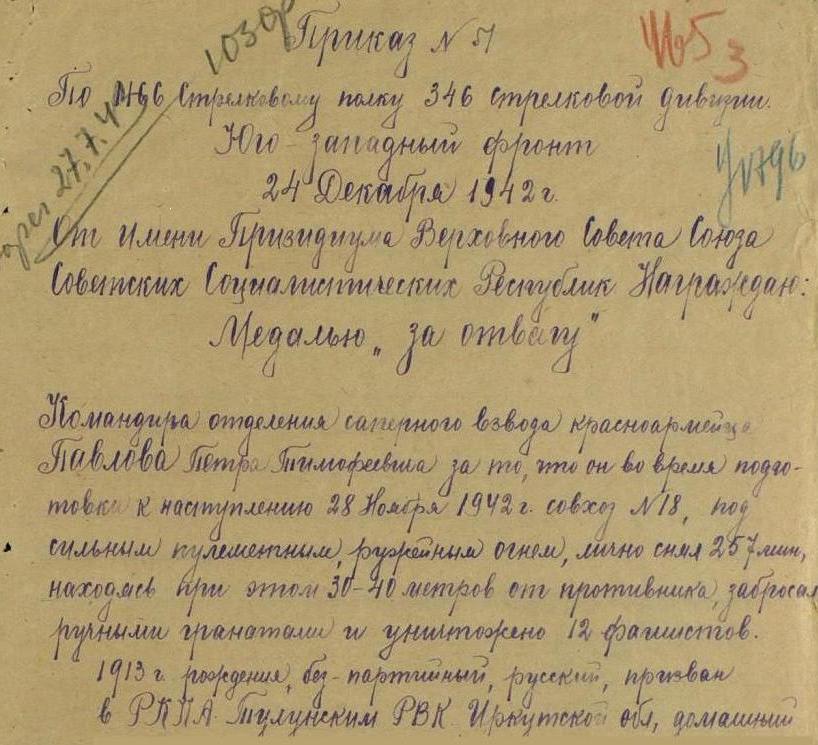 103 др
Приказ № 51
Ч65
3
По 1166 Стрелковому полку 346 стрелковой дивизии.
27.7.4
Юго-западный фронт
24 Декабря 1942 г.
От имени Призидиума Верховного Совета Союза
Советских Социалистических Республик Награждаю:
Медалью „за отвагу"
Командира отделения саперного взвода красноармейца
Павлова Петра Тимофеевича за то, что он во время подго-
товки к наступлению 28 Ноября 1942 г. совхоз №18, под
сильным пулеметным, ружейным огнем, лично снял 257 мин,
находясь при этом 30-40 метров от противника, забросал
ручными гранатами и уничтожено 12 фашистов.
1913 г. рождения, без-партийный, русский, призван
в РККА Тулунским РВК Иркутской обл, домашний